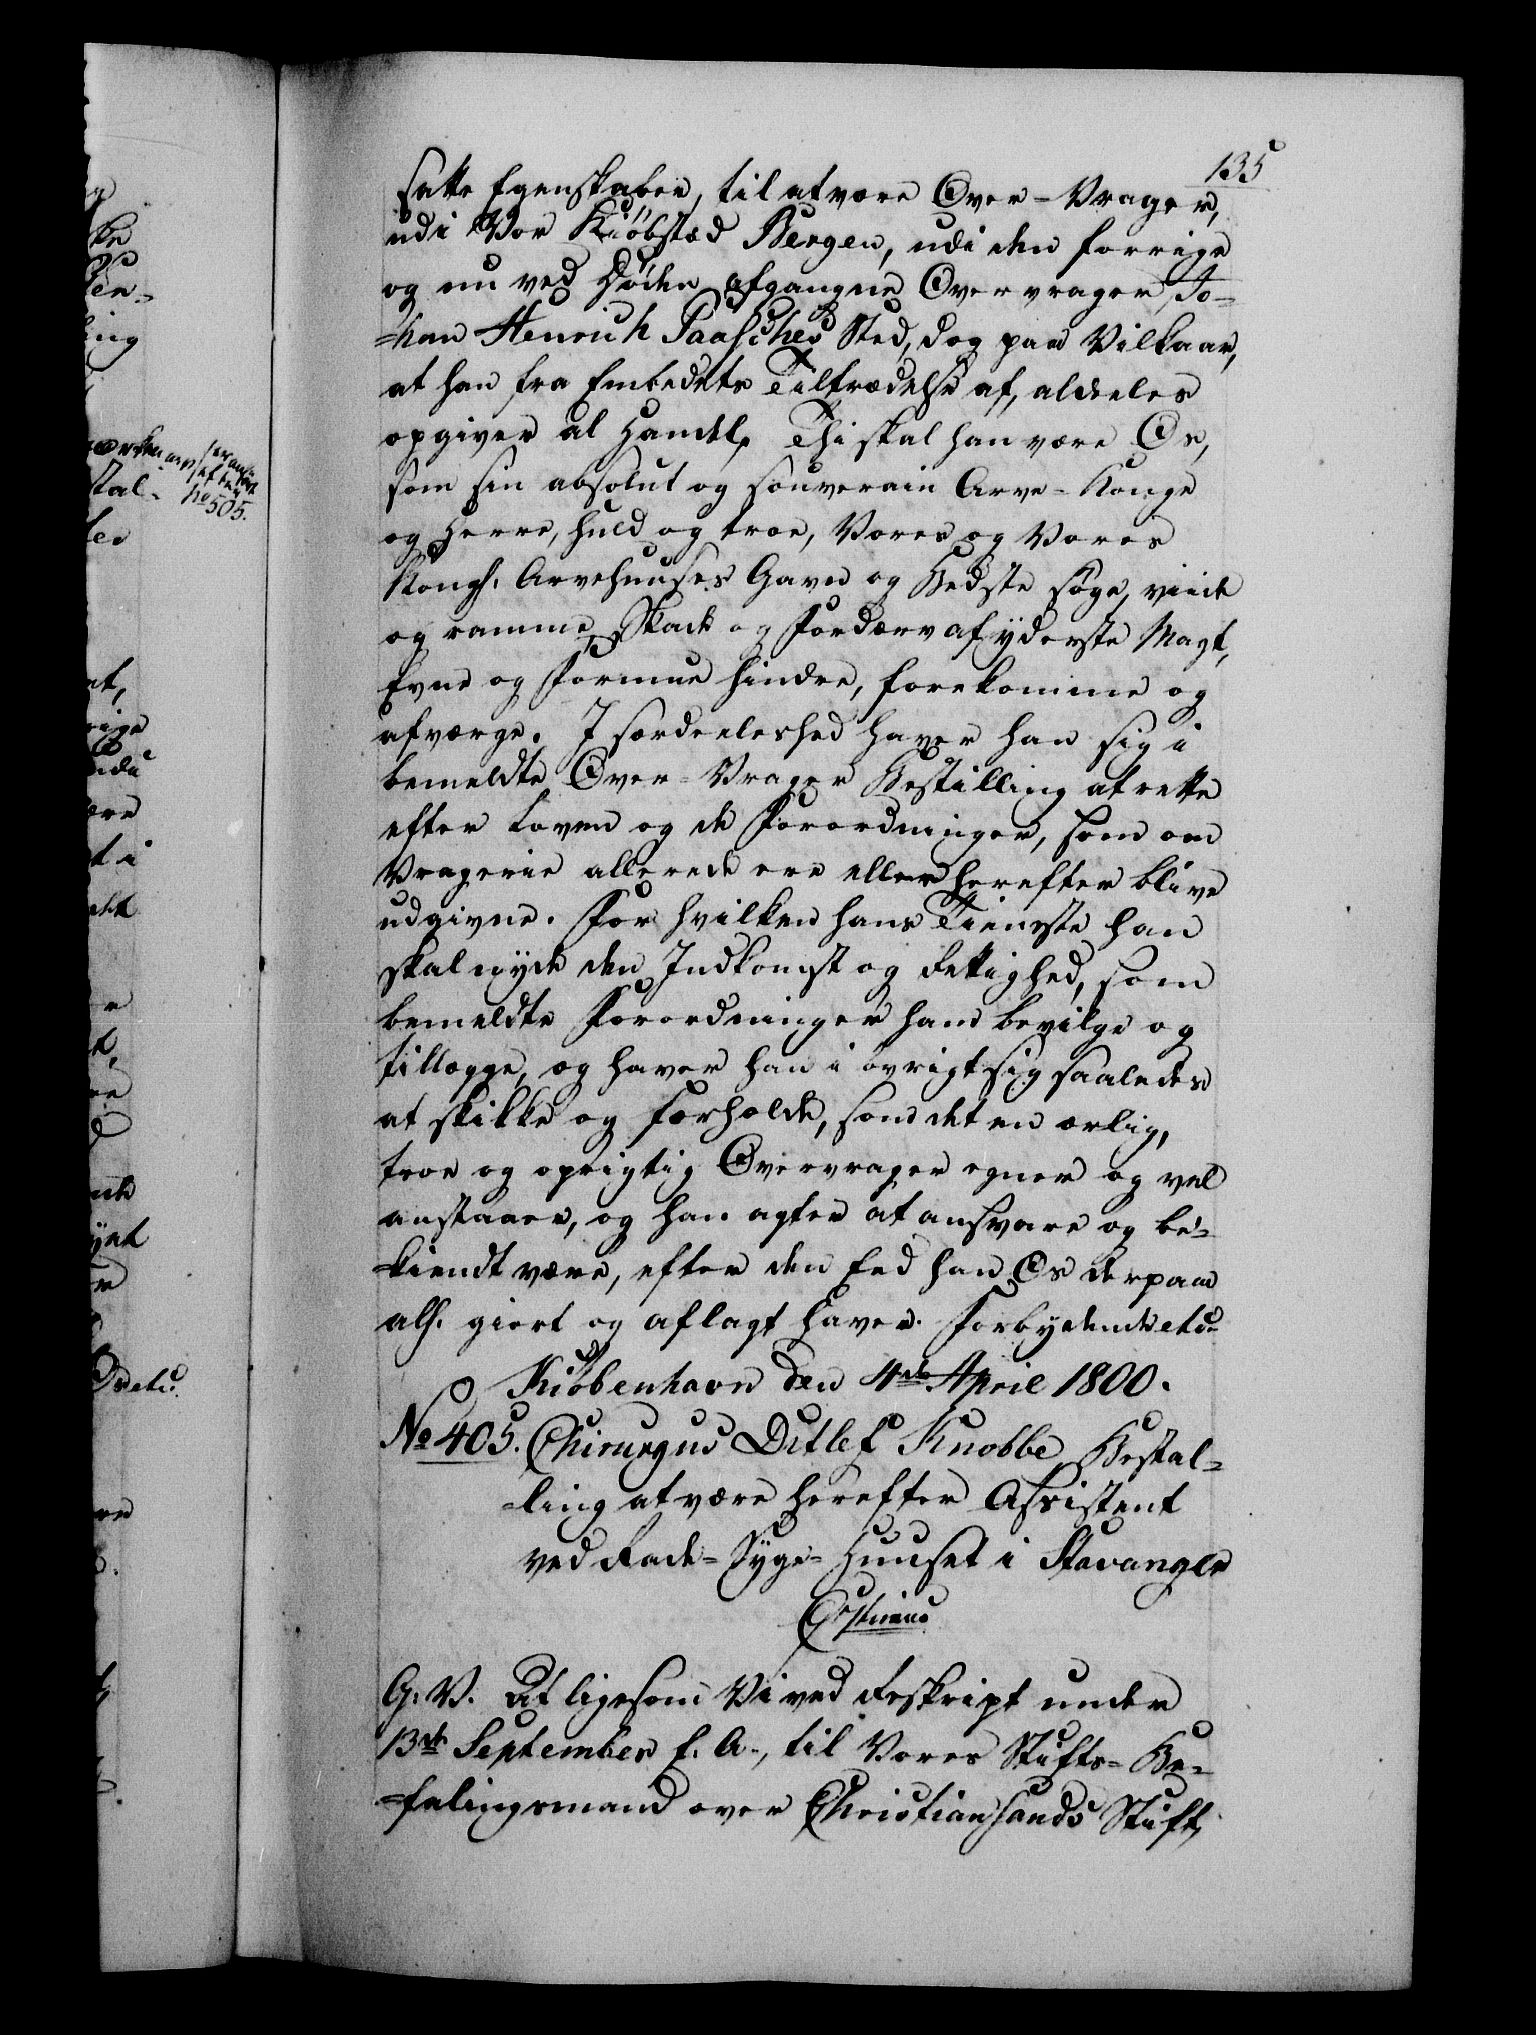 135
satte Egenskaber, til at være Over-Vrager,
udi Vor Kiöbstæd Bergen, udi den forrige
og nu ved Döden afgangne Overvrager Jo-
-han Henrich Paasches Sted, dog paa Vilkaar,
at han fra Embedets Tiltrædelse af, aldeeles
opgiver al Handel, Thi skal han være Os,
som sin absolut og souverain Arve-Konge
og Herre, huld og troe, Vores og Vores
Kongl. Arvehuuses Gavn og Bedste söge, viide
og ramme, Skade og Fordærv af yderste Magt,
Evne og Formue hindre, forekomme og
afværge. I særdeeleshed haver han sig i
bemeldte Over-Vrager Bestilling at rette
efter Loven og de Forordninger, som om
Vragerie allerede ere eller herefter blive
udgivne. For hvilken hans Tieneste han
skal nyde den Indkomst og Rettighed, som
bemeldte Forordninger ham bevilge og
tillægge, og haver han i övrigt sig saaledes
at skikke og forholde, som det en ærlig,
troe og oprigtig Overvrager egner og vel
anstaaer, og han agter at ansvare og be-
-kiendt være, efter den Eed han Os derpaa
alh. giort og aflagt haver. Forbydende etc.
Kiöbenhavn den 4de April 1800.
No 405. Chirurgus Ditlef Knobbe Bestal-
-ling at være herefter Assistent
ved Rade-Syge-Huuset i Stavanger
Christiansd
G: V. At ligesom Vi ved Reskript under
13de September f. A., til Vores Stifts-Be-
-falingsmand over Christiansands Stift,
No 505.